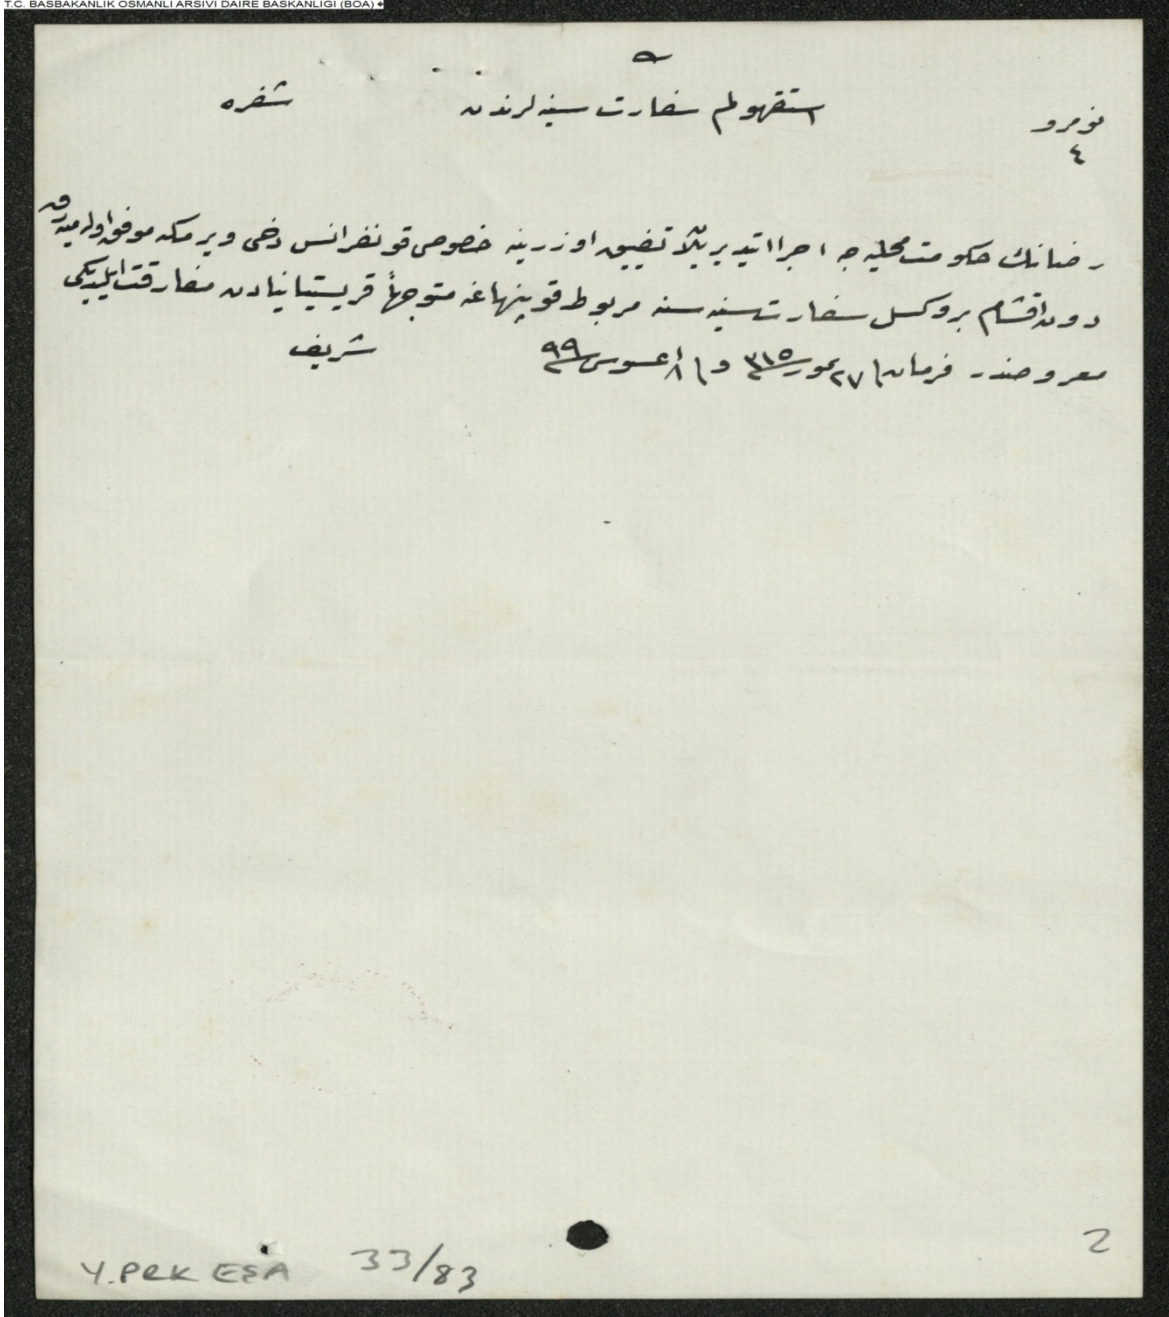 T.C. BASBAKANLIK OSMANLI ARSIVI DAIRE BASKANLIGI (BOA)
نومرو
٤
استقهولم سفارت سنيه لرندن
شفره
رضانك حكومت محليه جه اجرا ايتديريلان تضييق اوزرينه خصوصى قونفرانس دخى ويرمكه موفق اوله ميه رق
دون اقشام بروكسل سفارت سنيه سنه مربوط قوپنهاغه متوجهاً قريستيانيادن مفارقت ايلديكى
معروضدر فرمان فى ٢٧ تموز سنه ٣١٥ و فى ٨ اغستوس سنه ٩٩
شريف
2
Y.PRK ESA 33/83